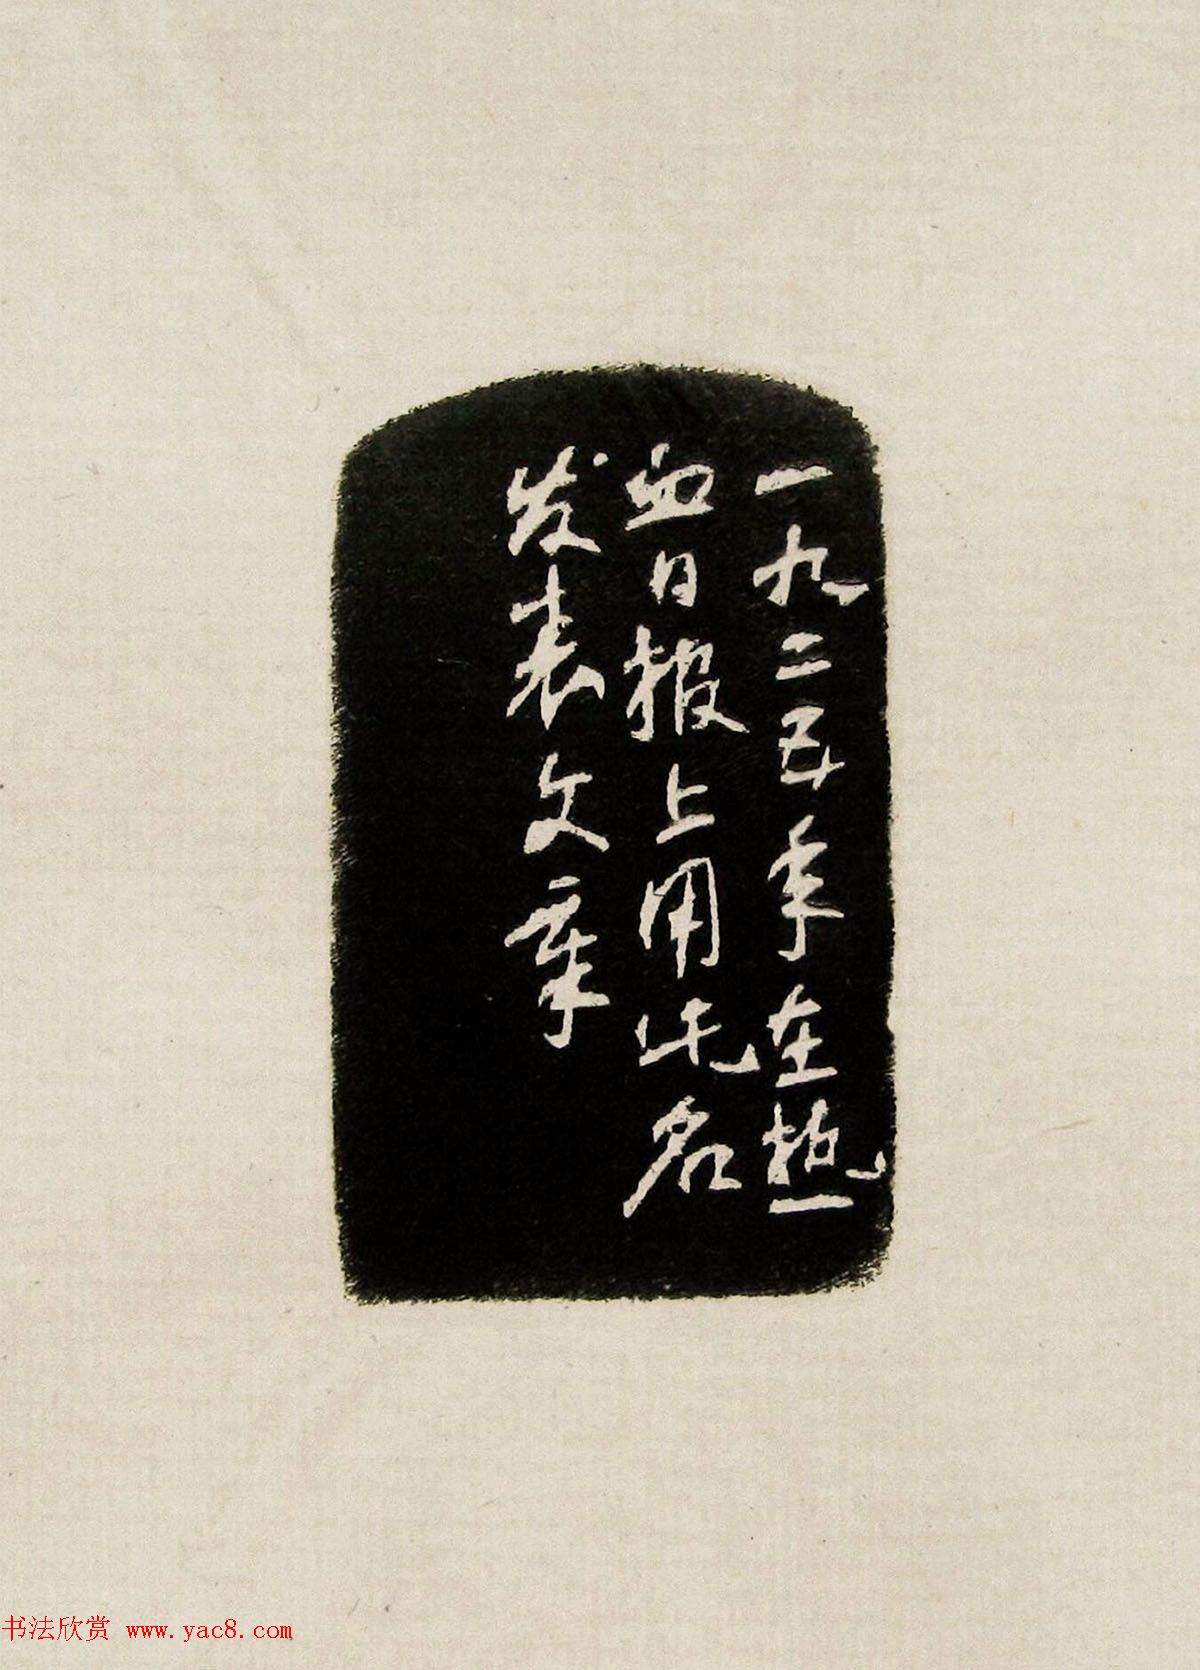 一九二五年在热
血日报上用此名
发表文章
书法欣赏 www.yac8.com